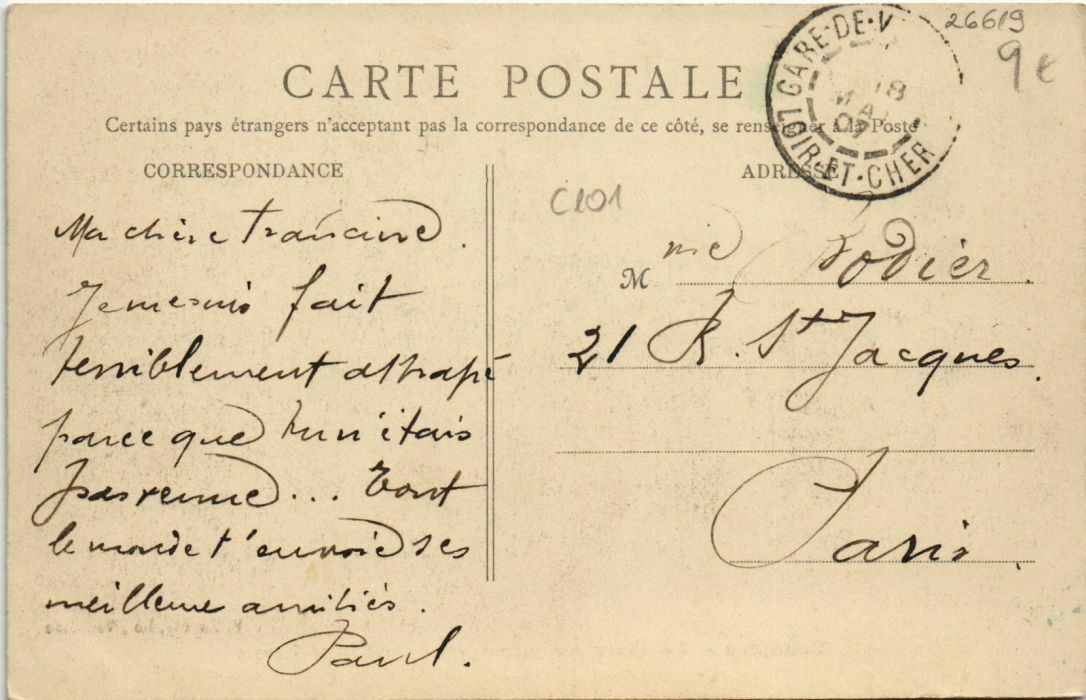 26619
9 €
GARE-DE-V
18
MAI
07
LOIR-ET-CHER
CARTE POSTALE
Certains pays étrangers n'acceptant pas la correspondance de ce côté, se renseigner à la Poste
CORRESPONDANCE
ADRESSE
C101
Ma chère Francine.
Je me suis fait
terriblement attrapé
parce que tu n'étais
pas venue... Tout
le monde t'envoie ses
meilleure amitiés.
Paul.
M me Bodier.
21 R. St Jacques.
Paris.